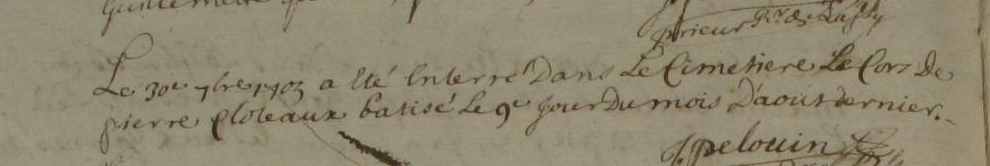 prieur
Le 30e 7bre 1703 a Eté Interré Dans Le Cimetiere Le Cors De
pierre ploteaux batisé Le 9e Jour Du mois D'aout dernier.
J. pelouin